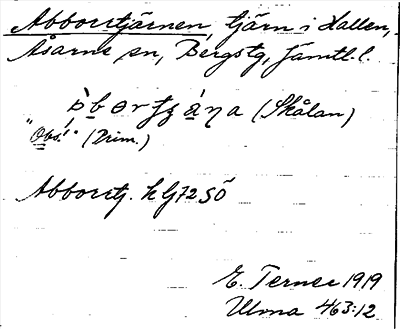 Abborrtjärnen, tjärn i Hallen,
Åsarne sn, Bergstg, Jämtl. l.
(Skålan)
"Obs!" (Prim.)
Abborrtj. h Gj72 SÖ
E. Ternee 1919
Ulvna 463:12